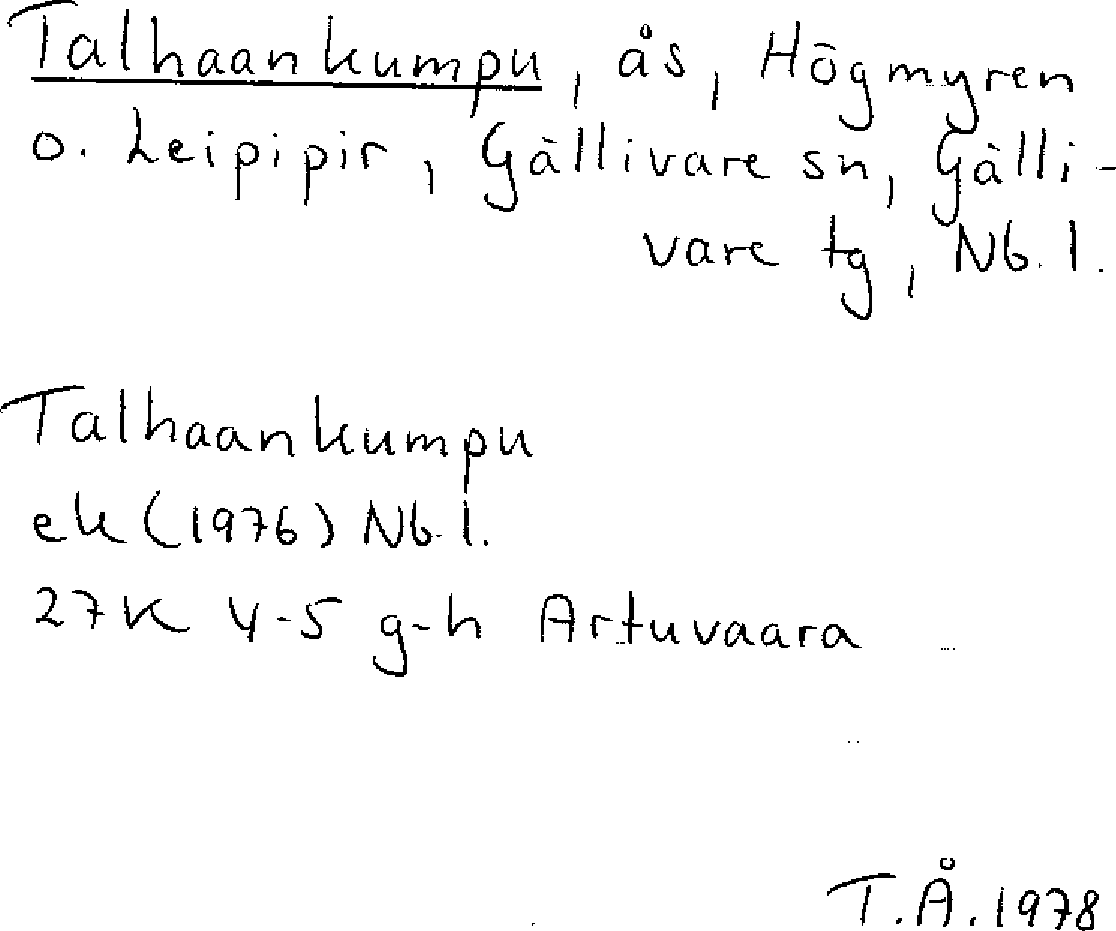 Talhaankumpu, ås, Högmyren
o. Leipipir, Gällivare sn, Gälli-
vare tg, Nb. l.
Talhaankumpu
ek (1976) Nb. l.
27K 4-5 g-h Artuvaara
T.Å. 1978